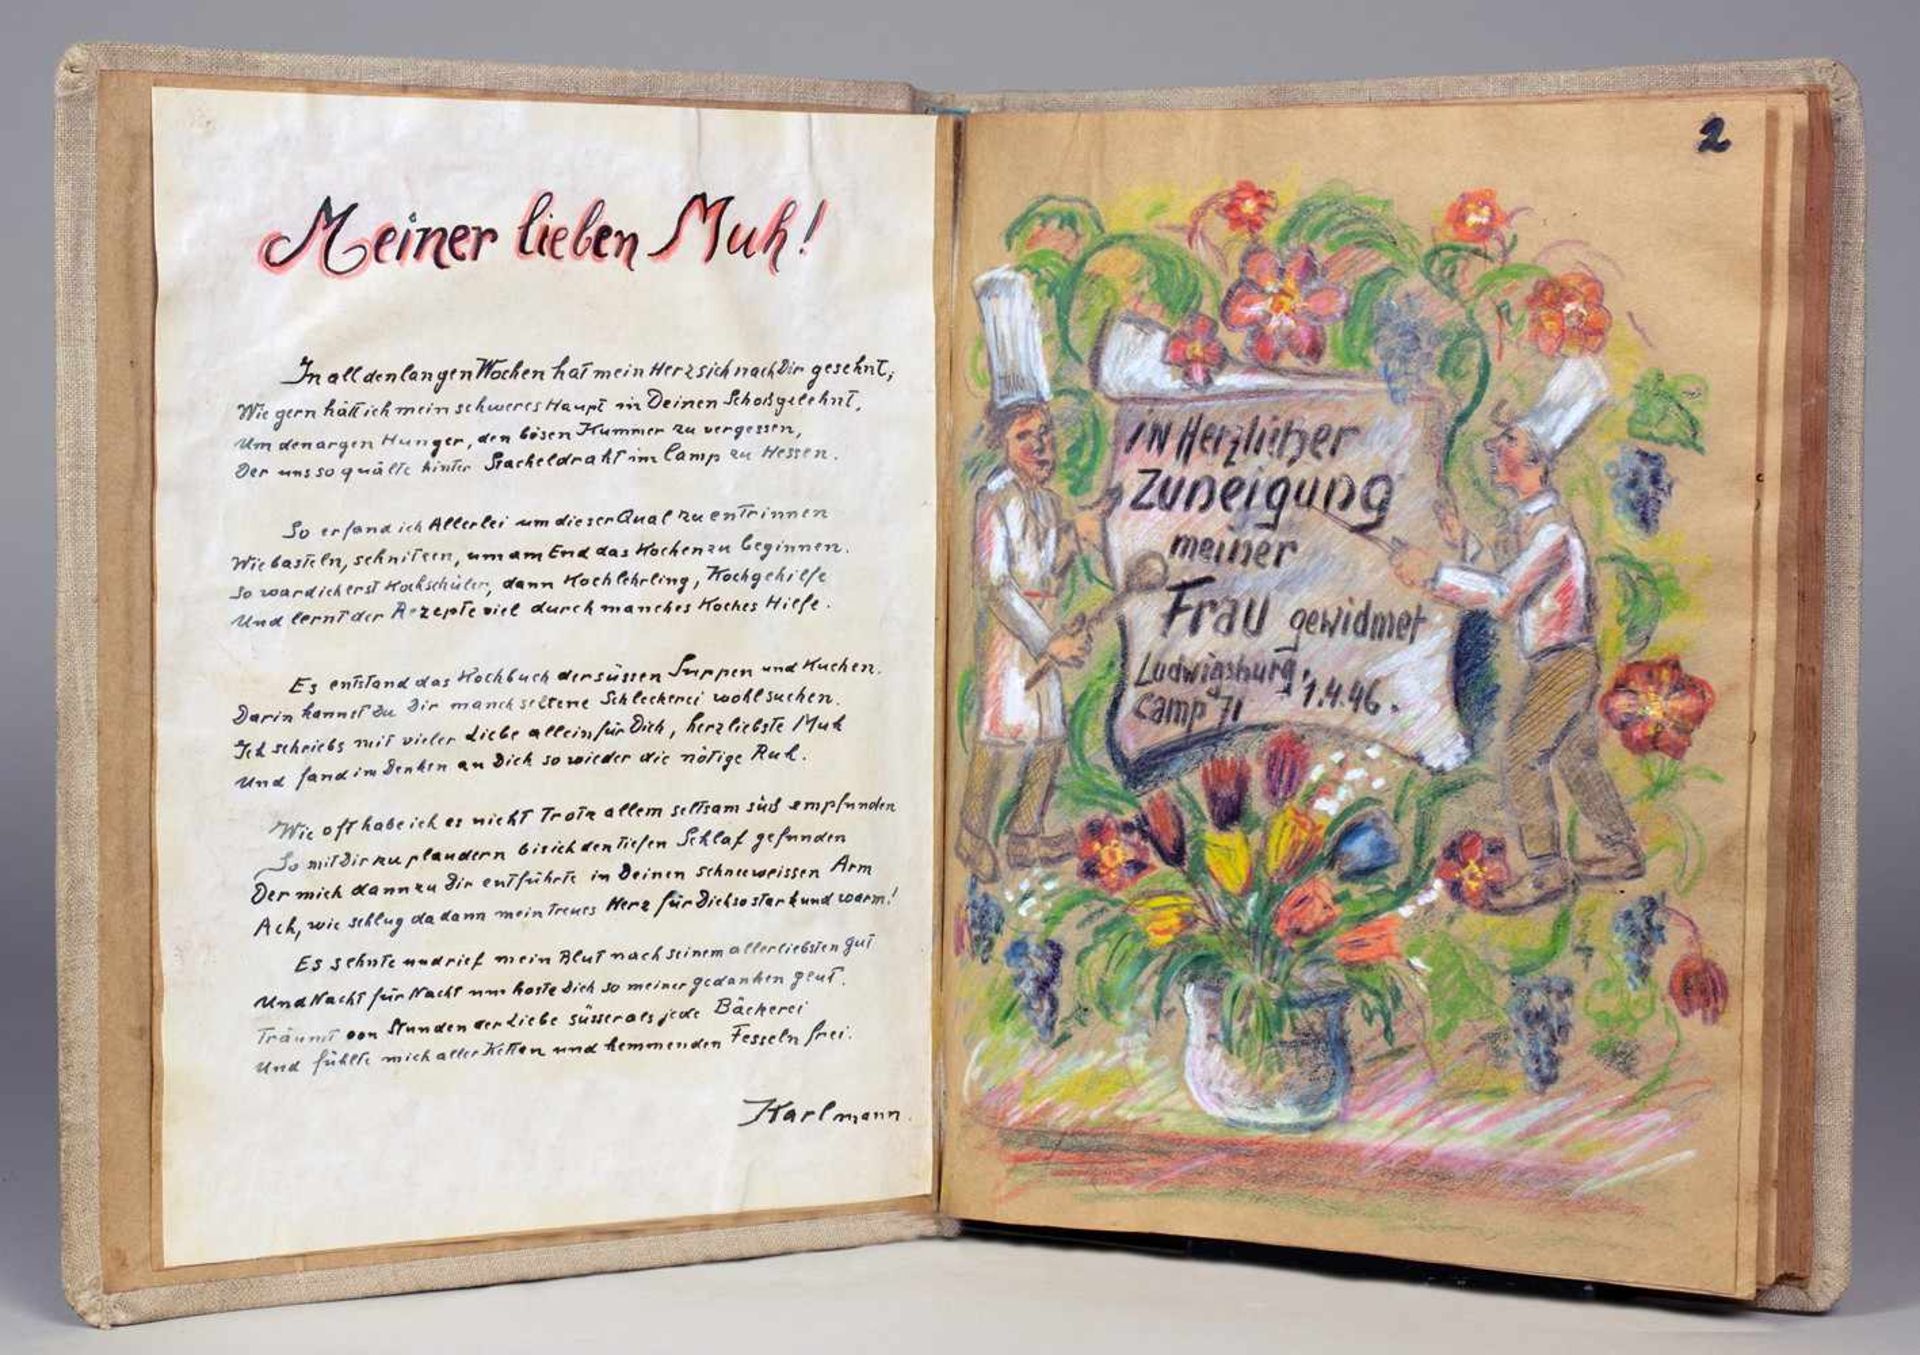 Meiner lieben Muh!
In all den langen Wochen hat mein Herz sich nach Dir gesehnt,
Wie gern hätt ich mein schweres Haupt in Deinen Schoß gelehnt,
Um den argen Hunger, den bösen Kummer zu vergessen,
Der uns so quälte hinter Stacheldraht im Camp zu Hessen.
So erfand ich Allerlei um dieser Qual zu entrinnen
Wie basteln, schnitzen, um am End das Kochen zu beginnen.
So ward ich erst Kochschüler, dann Kochlehrling, Kochgehilfe
Und lernt der Rezepte viel durch manches Koches Hilfe.
Es entstand das Kochbuch der süssen Suppen und Kuchen.
Darin kannst Du Dir manch seltene Schleckerei wohl suchen.
Ich schriebs mit vieler Liebe allein für Dich, herzliebste Muh
Und fand im Denken an Dich so wieder die nötige Ruh.
Wie oft habe ich es nicht Trotz allem seltsam süß empfunden
So mit Dir zu plaudern bis ich den tiefen Schlaf gefunden
Der mich dann zu Dir entführte in Deinen schneeweissen Arm
Ach, wie schlug da dann mein treues Herz für Dich so stark und warm!
Es sehnte und rief mein Blut nach seinem allerliebsten gut
Und Nacht für Nacht umkoste Dich so meiner gedanken glut.
Träumt von Stunden der Liebe süsser als jede Bäckerei
Und fühlte mich aller Ketten und hemmenden Fesseln frei.
Karlmann.
2
in Herzlicher
Zuneigung
meiner
Frau gewidmet
Ludwigsburg,
Camp 71 1.4.46.